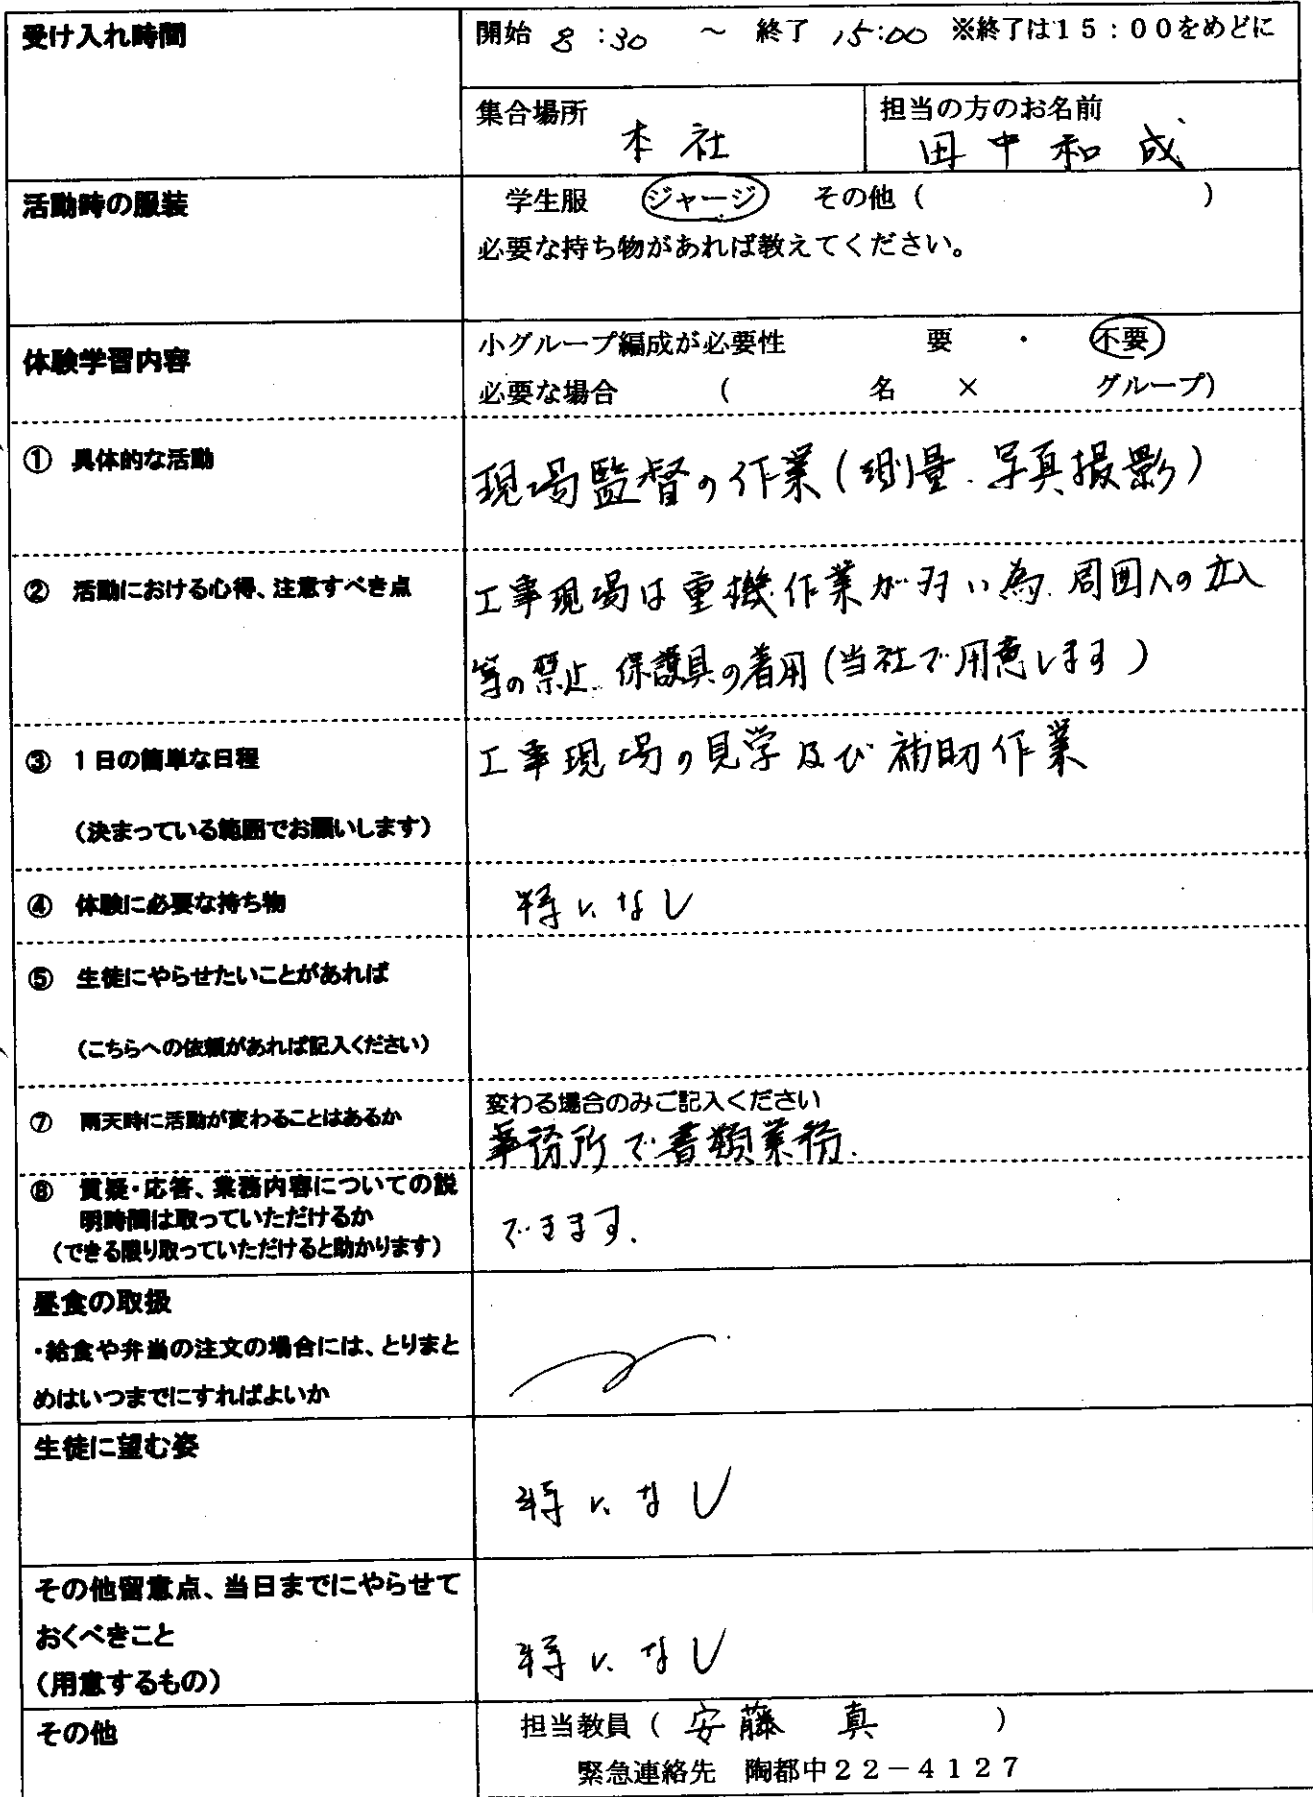 受け入れ時間
開始 8:30 ～ 終了 15:00 ※終了は15：00をめどに
集合場所
本社
担当の方のお名前
田中和成
活動時の服装
学生服 ジャージ その他（ ）
必要な持ち物があれば教えてください。
体験学習内容
小グループ編成が必要性 要 ・ 不要
必要な場合 （ 名 × グループ）
① 具体的な活動
現場監督の作業(測量.写真撮影)
② 活動における心得、注意すべき点
工事現場は重機作業が多い為.周囲への立入
等の禁止.保護具の着用(当社で用意します)
③ 1日の簡単な日程
（決まっている範囲でお願いします）
工事現場の見学及び補助作業
④ 体験に必要な持ち物
特になし
⑤ 生徒にやらせたいことがあれば
（こちらへの依頼があれば記入ください）
⑦ 雨天時に活動が変わることはあるか
変わる場合のみご記入ください
事務所で書類業務.
⑧ 質疑・応答、業務内容についての説
明時間は取っていただけるか
（できる限り取っていただけると助かります）
できます.
昼食の取扱
・給食や弁当の注文の場合には、とりまと
めはいつまでにすればよいか
生徒に望む姿
特になし
その他留意点、当日までにやらせて
おくべきこと
（用意するもの）
特になし
その他
担当教員（ 安藤 真 ）
緊急連絡先 陶都中22－4127